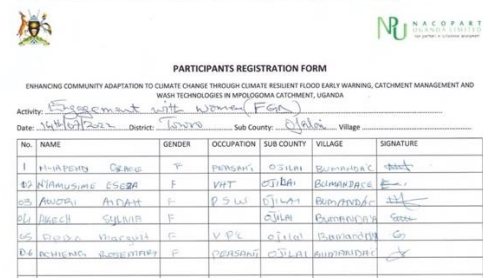 NPU NACOPART
UGANDA LIMITED
PARTICIPANTS REGISTRATION FORM
ENHANCING COMMUNITY ADAPTATION TO CLIMATE CHANGE THROUGH CLIMATE RESILIENT FLOOD EARLY WARNING, CATCHMENT MANAGEMENT AND
WASH TECHNOLOGIES IN MPOLOGOMA CATCHMENT, UGANDA
Activity: Engagement with women (FGD)
Date: 14th/07/2022 District: Tororo Sub County: Ojilai Village
No. NAME GENDER OCCUPATION SUB COUNTY VILLAGE SIGNATURE
1 GRACE F PEASANT OJILAI BUMANDA'C
02 NYAMUSIME ESEZA F VHT OJILAI BUMANDA C
03 AWORI AIDAH F PSW OJILAI BUMANDA'C
04 AKECH SYLVIA F OJILAI BUMANDA'A
05 F VPC OJILAI Bumanda
06 ACHIENG ROSEMARY F PEASANT OJILAI BUMANDA'C